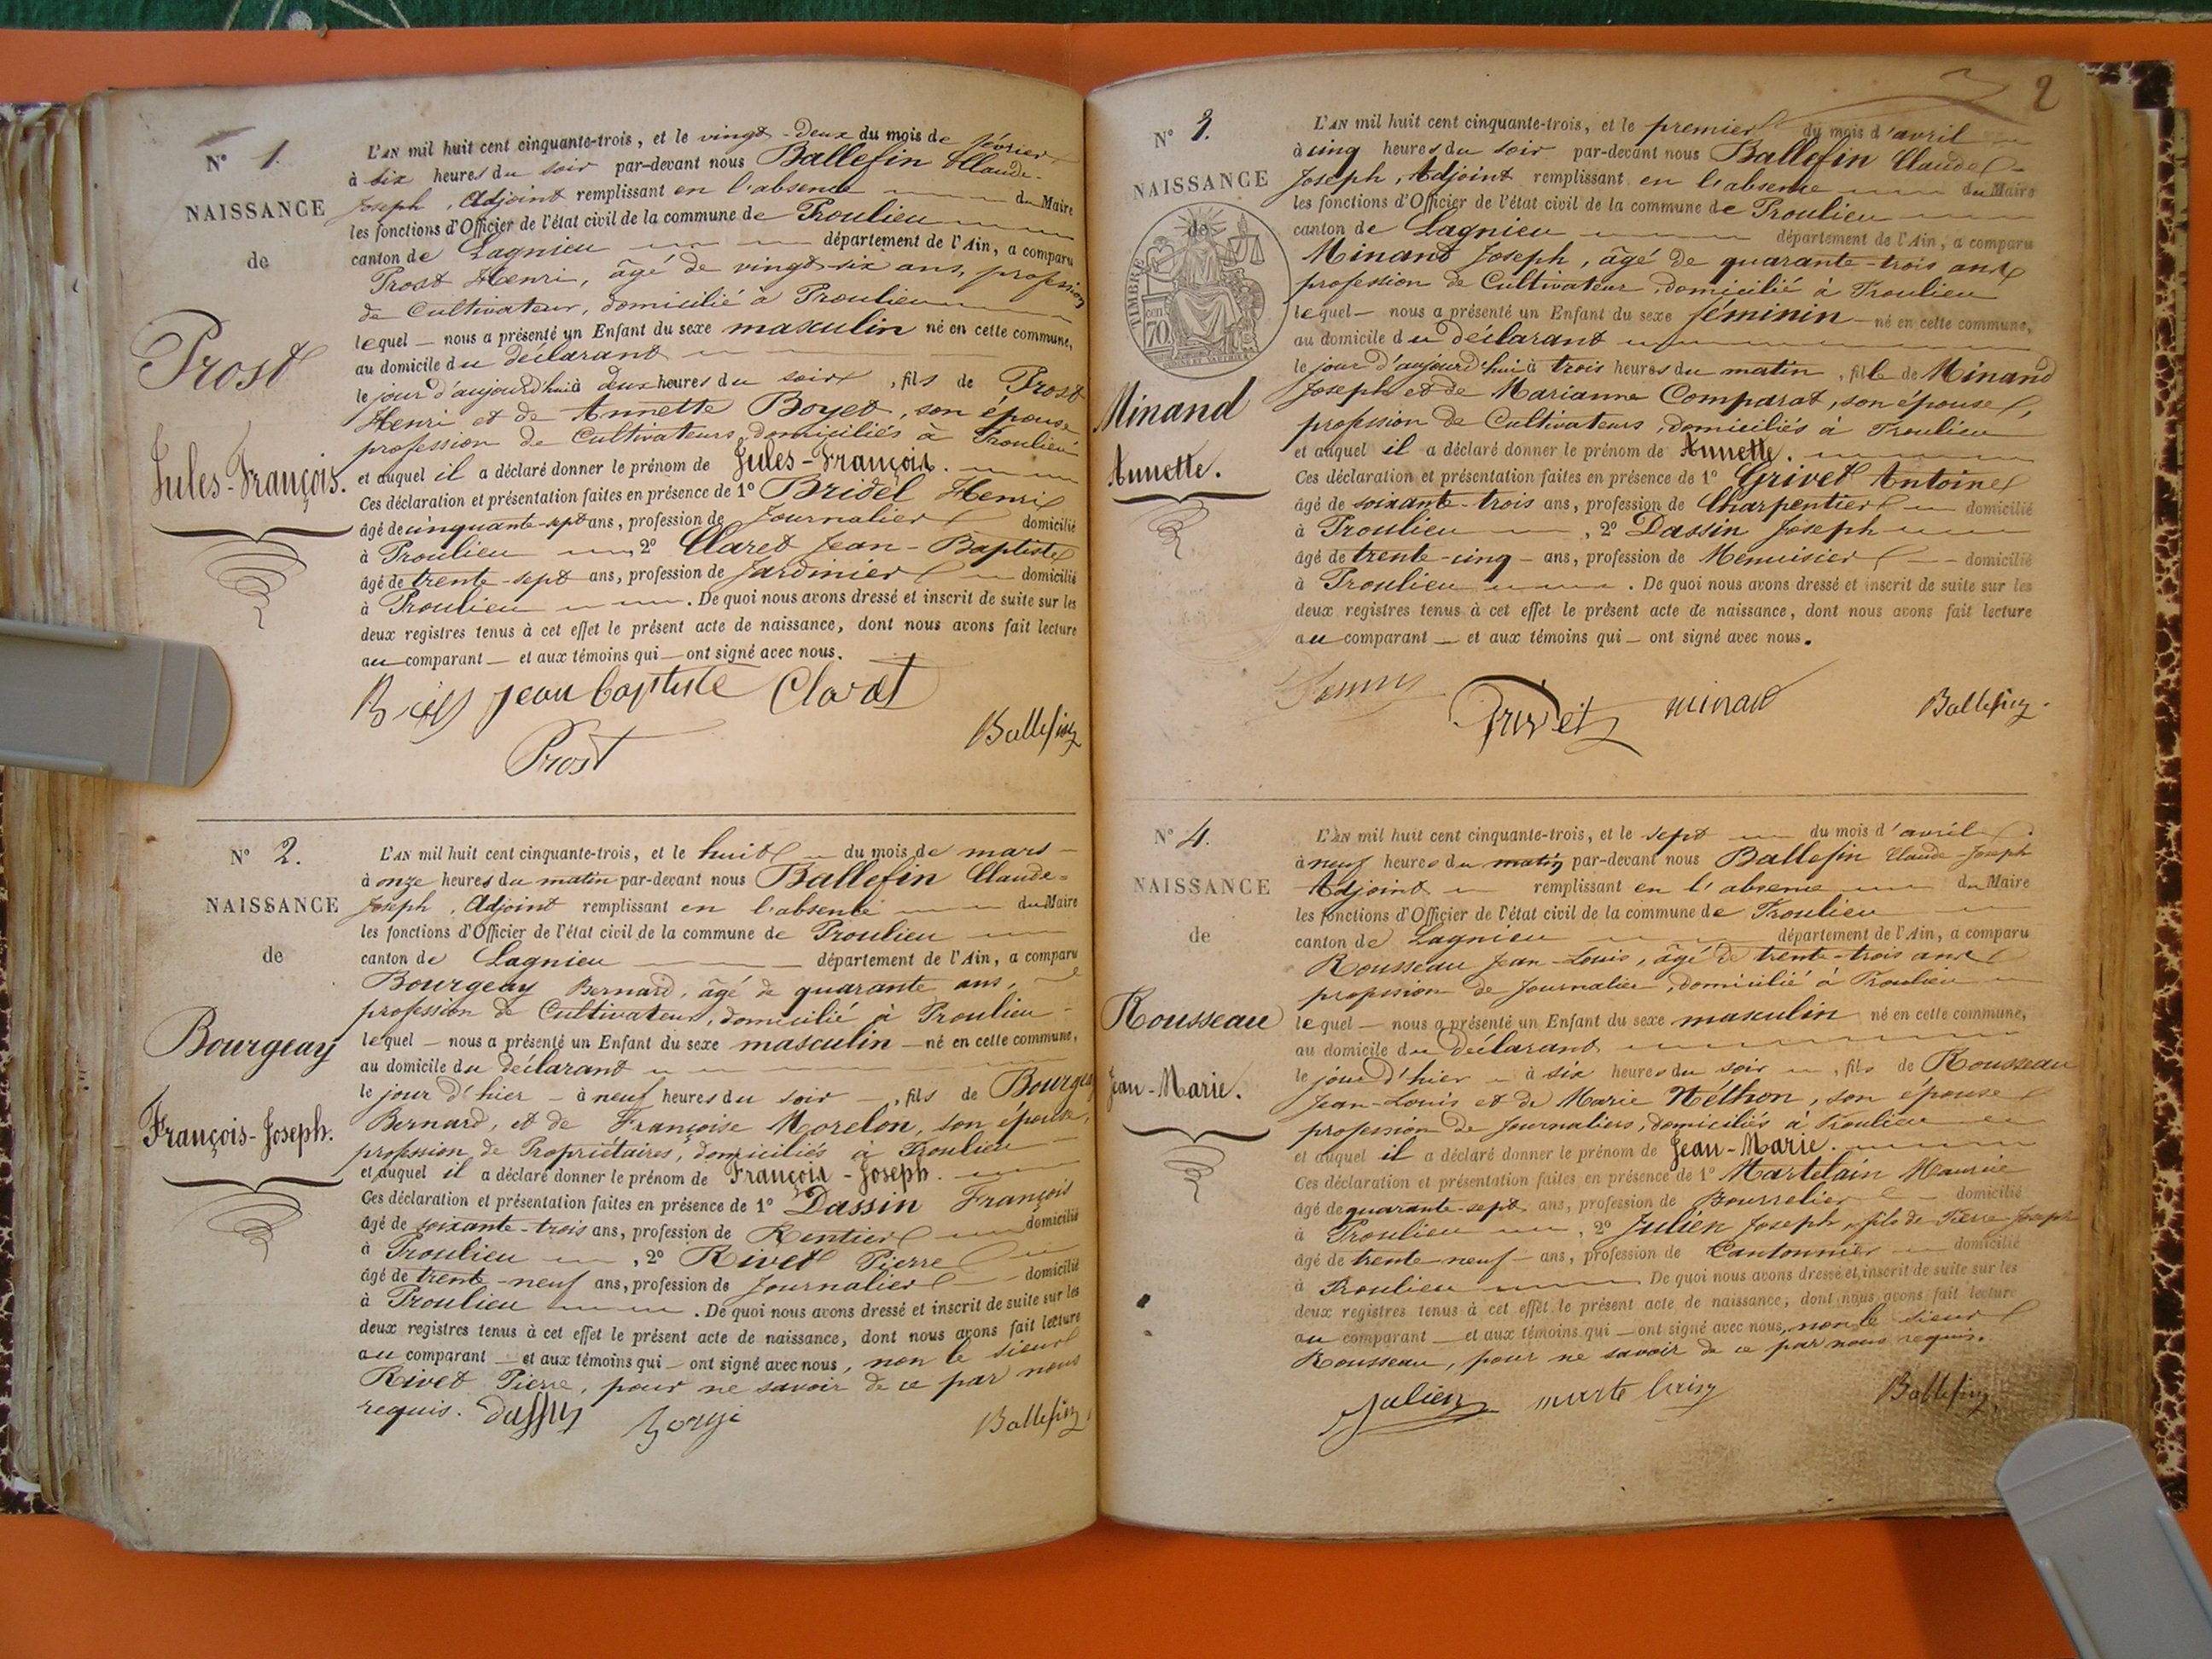 N° 1.
NAISSANCE
de
Prost
Jules-François.
L'AN mil huit cent cinquante-trois, et le vingt-deux du mois de février
à six heures du soir par-devant nous Ballefin Claude-
Joseph, Adjoint remplissant en l'absence du Maire
les fonctions d'Officier de l'état civil de la commune de Proulieu
canton de Lagnieu département de l'Ain, a comparu
Prost Henri, âgé de vingt-six ans, profession
de Cultivateur, domicilié à Proulieu
lequel — nous a présenté un Enfant du sexe masculin né en cette commune,
au domicile du déclarant
le jour d'aujourd'hui à deux heures du soir, fils de Prost
Henri et de Annette Boyet, son épouse
profession de Cultivateurs, domiciliés à Proulieu
et auquel il a déclaré donner le prénom de Jules-François.
Ces déclaration et présentation faites en présence de 1° Bridel Henri
âgé de cinquante-sept ans, profession de Journalier domicilié
à Proulieu 2° Claret Jean-Baptiste
âgé de trente-sept ans, profession de Jardinier domicilié
à Proulieu. De quoi nous avons dressé et inscrit de suite sur les
deux registres tenus à cet effet le présent acte de naissance, dont nous avons fait lecture
au comparant — et aux témoins qui — ont signé avec nous.
jean baptiste Claret
Ballefin
Prost
N° 2.
NAISSANCE
de
Bourgeay
François-Joseph.
L'AN mil huit cent cinquante-trois, et le huit du mois de mars
à onze heures du matin par-devant nous Ballefin Claude-
Joseph, Adjoint remplissant en l'absence du Maire
les fonctions d'Officier de l'état civil de la commune de Proulieu
canton de Lagnieu département de l'Ain, a comparu
Bourgeay Bernard, âgé de quarante ans,
profession de Cultivateur, domicilié à Proulieu
lequel — nous a présenté un Enfant du sexe masculin — né en cette commune,
au domicile du déclarant
le jour d'hier — à neuf heures du soir —, fils de Bourgeay
Bernard, et de Françoise Morelon, son épouse,
profession de Propriétaires, domiciliés à Proulieu
et auquel il a déclaré donner le prénom de François-Joseph.
Ces déclaration et présentation faites en présence de 1° Dassin François
âgé de soixante-trois ans, profession de Rentier domicilié
à Proulieu, 2° Rivet Pierre
âgé de trente-neuf ans, profession de Journalier domicilié
à Proulieu. De quoi nous avons dressé et inscrit de suite sur les
deux registres tenus à cet effet le présent acte de naissance, dont nous avons fait lecture
au comparant — et aux témoins qui — ont signé avec nous, non le sieur
Rivet Pierre, pour ne savoir de ce par nous
requis.
Ballefin
2
N° 3.
NAISSANCE
de
TIMBRE
70
Minand
Annette.
L'AN mil huit cent cinquante-trois, et le premier du mois d'avril
à cinq heures du soir par-devant nous Ballefin Claude-
Joseph, Adjoint remplissant en l'absence du Maire
les fonctions d'Officier de l'état civil de la commune de Proulieu
canton de Lagnieu département de l'Ain, a comparu
Minand Joseph, âgé de quarante-trois ans
profession de Cultivateur, domicilié à Proulieu
lequel — nous a présenté un Enfant du sexe féminin — né en cette commune,
au domicile du déclarant
le jour d'aujourd'hui à trois heures du matin, fille de Minand
Joseph et de Marianne Comparat, son épouse,
profession de Cultivateurs, domiciliés à Proulieu
et auquel il a déclaré donner le prénom de Annette.
Ces déclaration et présentation faites en présence de 1° Grivet Antoine
âgé de soixante-trois ans, profession de Charpentier domicilié
à Proulieu, 2° Dassin Joseph
âgé de trente-cinq — ans, profession de Menuisier — domicilié
à Proulieu. De quoi nous avons dressé et inscrit de suite sur les
deux registres tenus à cet effet le présent acte de naissance, dont nous avons fait lecture
au comparant — et aux témoins qui — ont signé avec nous.
Grivet minand Ballefin
N° 4.
NAISSANCE
de
Rousseau
Jean-Marie.
L'AN mil huit cent cinquante-trois, et le sept du mois d'avril
à neuf heures du matin par-devant nous Ballefin Claude-Joseph
Adjoint remplissant en l'absence du Maire
les fonctions d'Officier de l'état civil de la commune de Proulieu
canton de Lagnieu département de l'Ain, a comparu
Rousseau Jean-Louis, âgé de trente-trois ans
profession de Journalier, domicilié à Proulieu
lequel — nous a présenté un Enfant du sexe masculin né en cette commune,
au domicile du déclarant
le jour d'hier à six heures du soir, fils de Rousseau
Jean-Louis et de Marie Néthon, son épouse
profession de Journaliers, domiciliés à Proulieu
et auquel il a déclaré donner le prénom de Jean-Marie.
Ces déclaration et présentation faites en présence de 1° Martelain Maurice
âgé de quarante-sept ans, profession de Bourrelier domicilié
à Proulieu, 2° Julien Joseph, fils de Pierre-Joseph
âgé de trente-neuf — ans, profession de Cantonnier domicilié
à Proulieu De quoi nous avons dressé et inscrit de suite sur les
deux registres tenus à cet effet le présent acte de naissance, dont nous avons fait lecture
au comparant — et aux témoins qui — ont signé avec nous, non le sieur
Rousseau, pour ne savoir de ce par nous requis.
Julien Ballefin